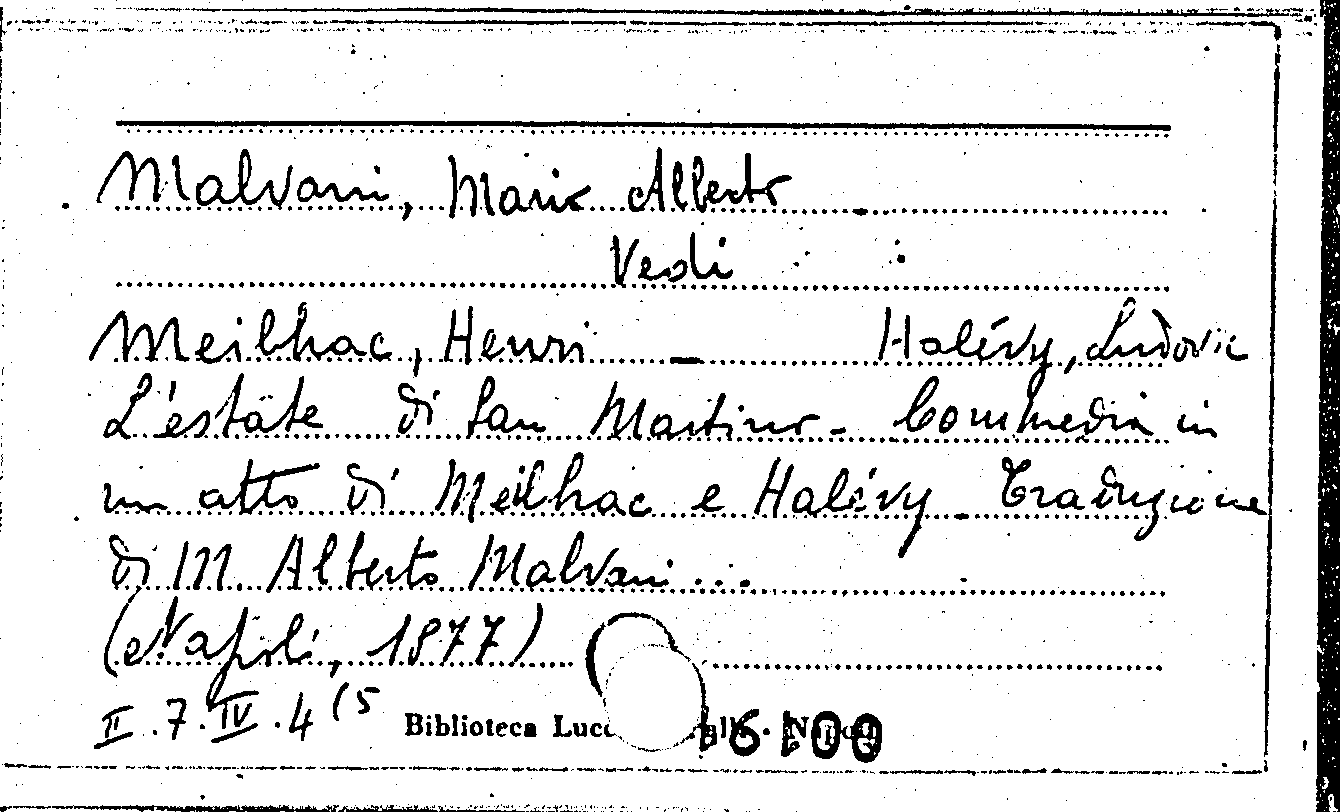 Malvani, Mario Alberto
Vedi
Meilhac, Henri - Halévy, Ludovic
L'estate di San Martino - Commedia in
un atto di Meilhac e Halévy - Traduzione
di M. Alberto Malvani...
(Napoli, 1877)
II.7.IV.4(5
Biblioteca